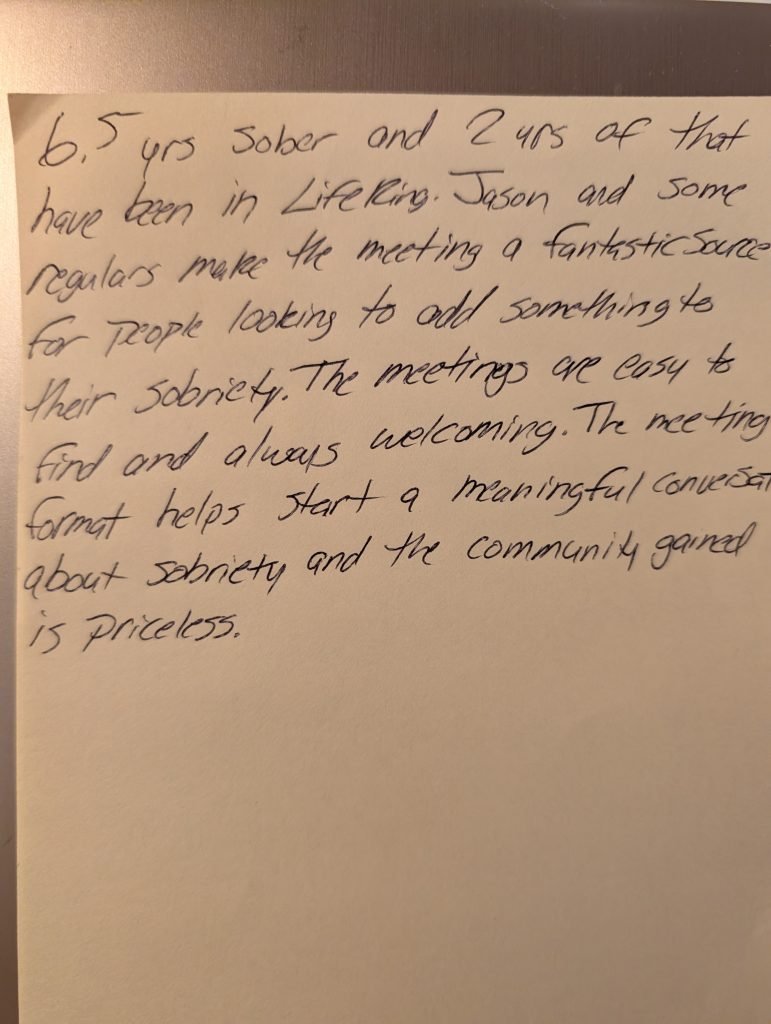 6.5 yrs sober and 2 yrs of that
have been in LifeRing. Jason and some
regulars make the meeting a fantastic source
for people looking to add something to
their sobriety. The meetings are easy to
find and always welcoming. The meeting
format helps start a meaningful conversat
about sobriety and the community gained
is priceless.